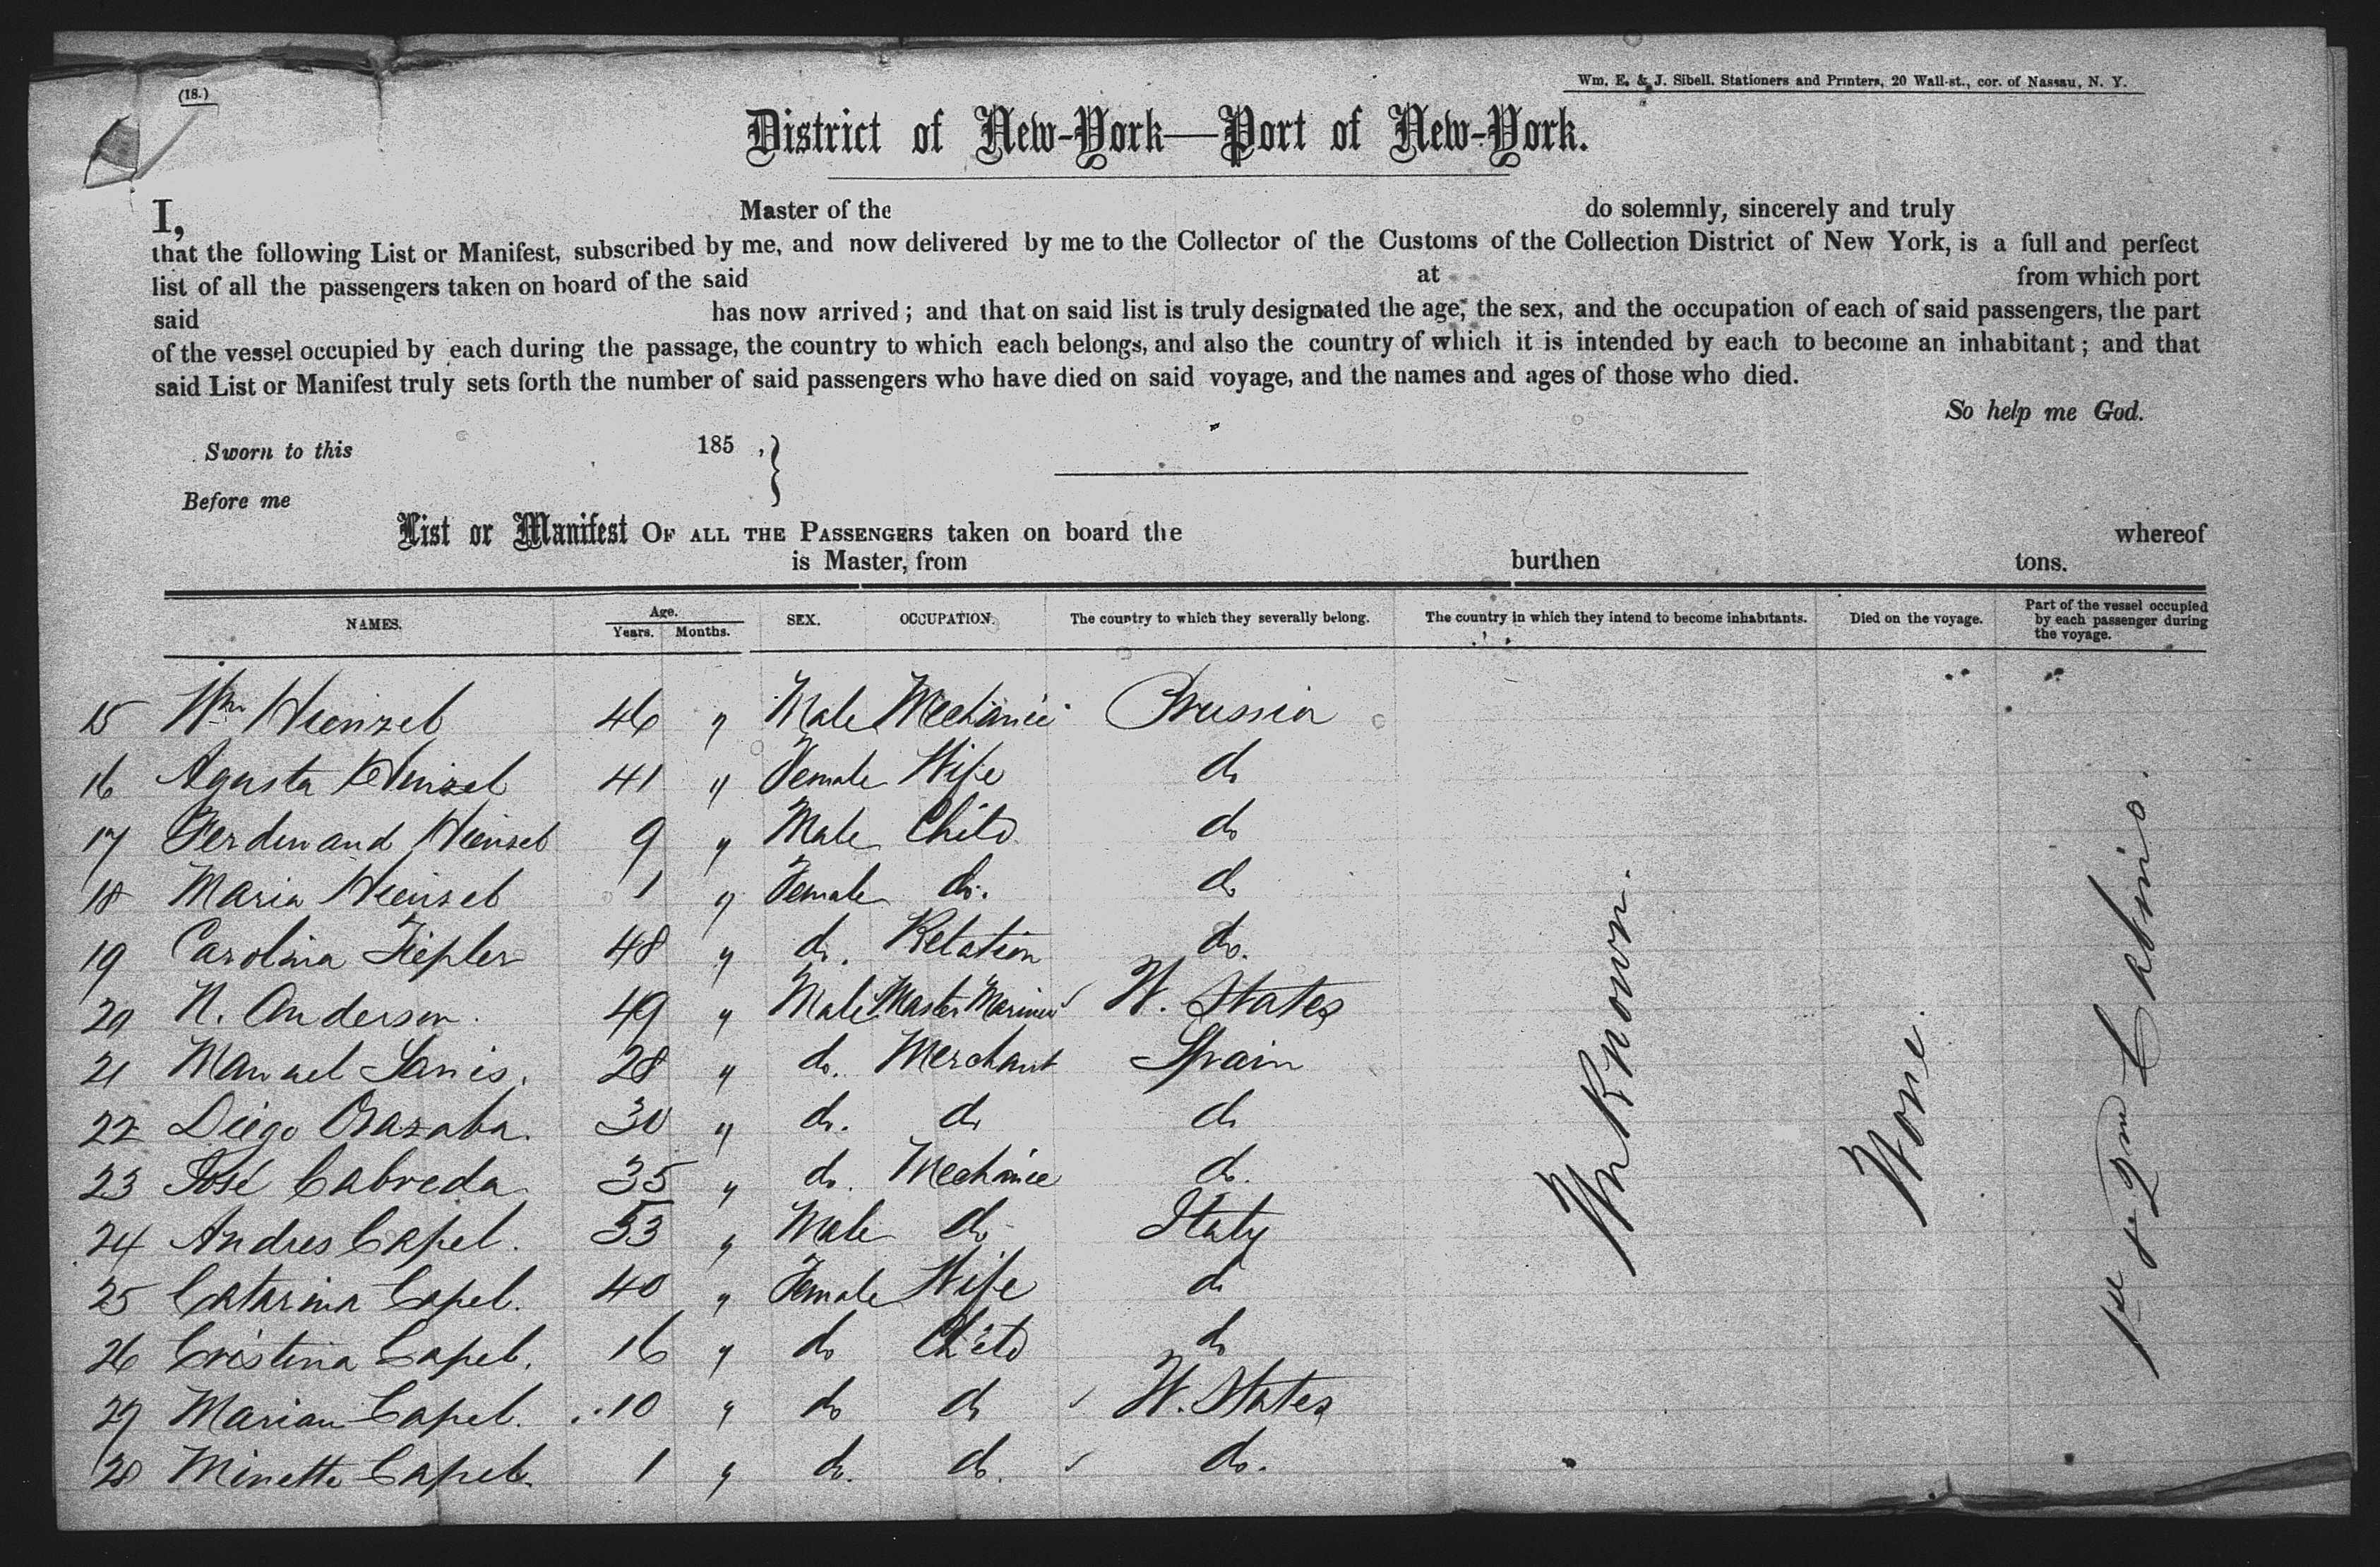 (18.)
Wm. E. & J. Sibell. Stationers and Printers, 20 Wall-st., cor. of Nassau, N. Y.
District of New-York—Port of New-York.
I, Master of the do solemnly, sincerely and truly
that the following List or Manifest, subscribed by me, and now delivered by me to the Collector of the Customs of the Collection District of New York, is a full and perfect
list of all the passengers taken on board of the said at from which port
said has now arrived; and that on said list is truly designated the age, the sex, and the occupation of each of said passengers, the part
of the vessel occupied by each during the passage, the country to which each belongs, and also the country of which it is intended by each to become an inhabitant; and that
said List or Manifest truly sets forth the number of said passengers who have died on said voyage, and the names and ages of those who died.
So help me God.
Sworn to this 185 ,}
Before me
List or Manifest OF ALL THE PASSENGERS taken on board the whereof
is Master, from burthen tons.
NAMES. Age. Years. Months. SEX. OCCUPATION. The country to which they severally belong. The country in which they intend to become inhabitants. Died on the voyage. Part of the vessel occupied by each passenger during the voyage.
15 Wm Heinzel 46 " Male Mechanic Prussia
16 Agusta Heinzel 41 " Female Wife do
17 Ferdinand Heinzel 9 " Male Child do
18 Maria Heinzel 1 " Female do. do
19 Carolina 48 " do. Relation do.
20 N. Anderson. 49 " Male Master Mariner U. States
21 Manuel 28 " do. Merchant Spain
22 Diego 30 " do. do do
23 José Cabreda 35 " do. Mechanic do.
24 Andres Capel. 53 " Male do Italy
25 Catarina Capel. 40 " Female Wife do
26 Cristina Capel. 16 " do Child do
27 Marian Capel. 10 " do do U. States
28 Minette Capel. 1 " do. do. do.
Unknown.
None.
1st & 2nd Cabins.